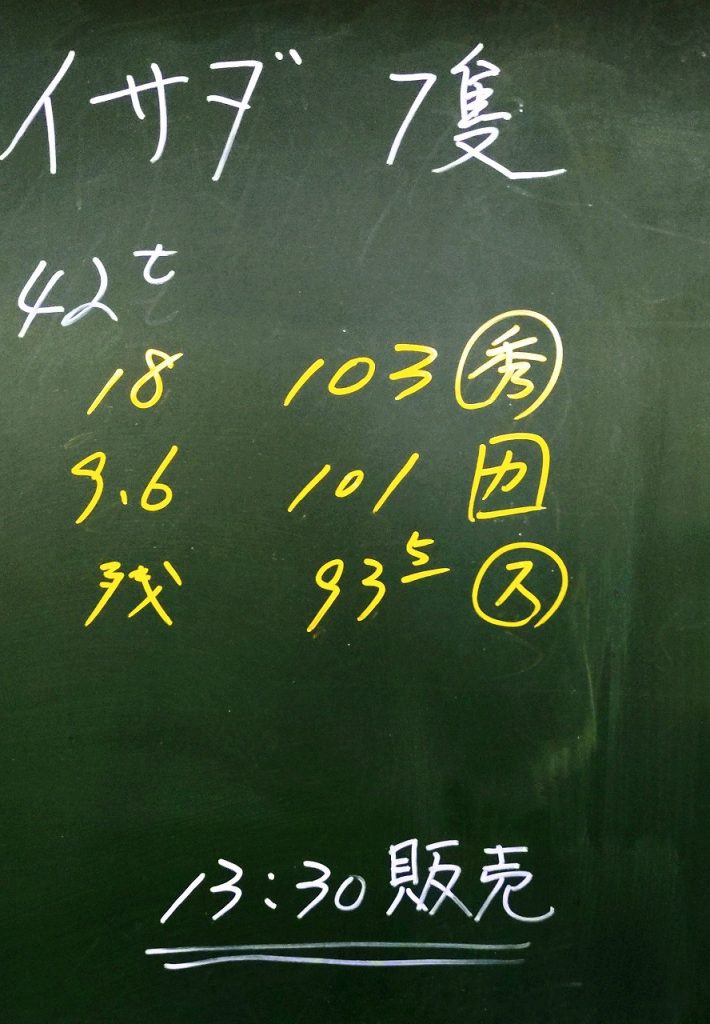 イサダ 7隻
42t
18 103 ㊙秀
9.6 101 カ
残 93 5 ス
13:30 販売